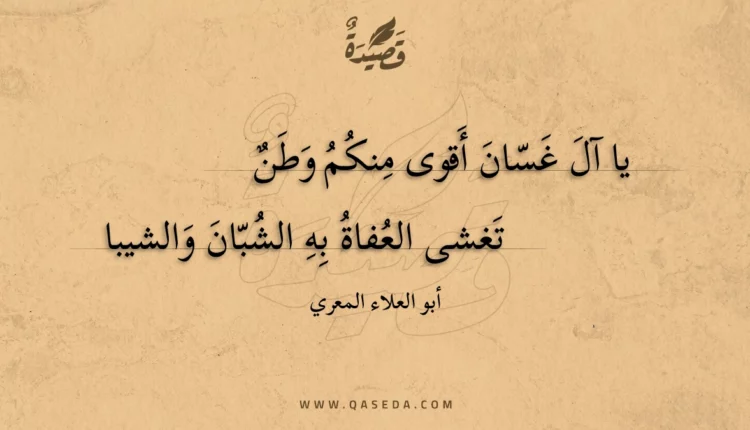 قَصِيدَةٌ
يا آلَ غَسّانَ أَقوى مِنكُمُ وَطَنٌ
تَغشى العُفاةُ بِهِ الشُبّانَ وَالشيبا
أبو العلاء المعري
WWW.QASEDA.COM